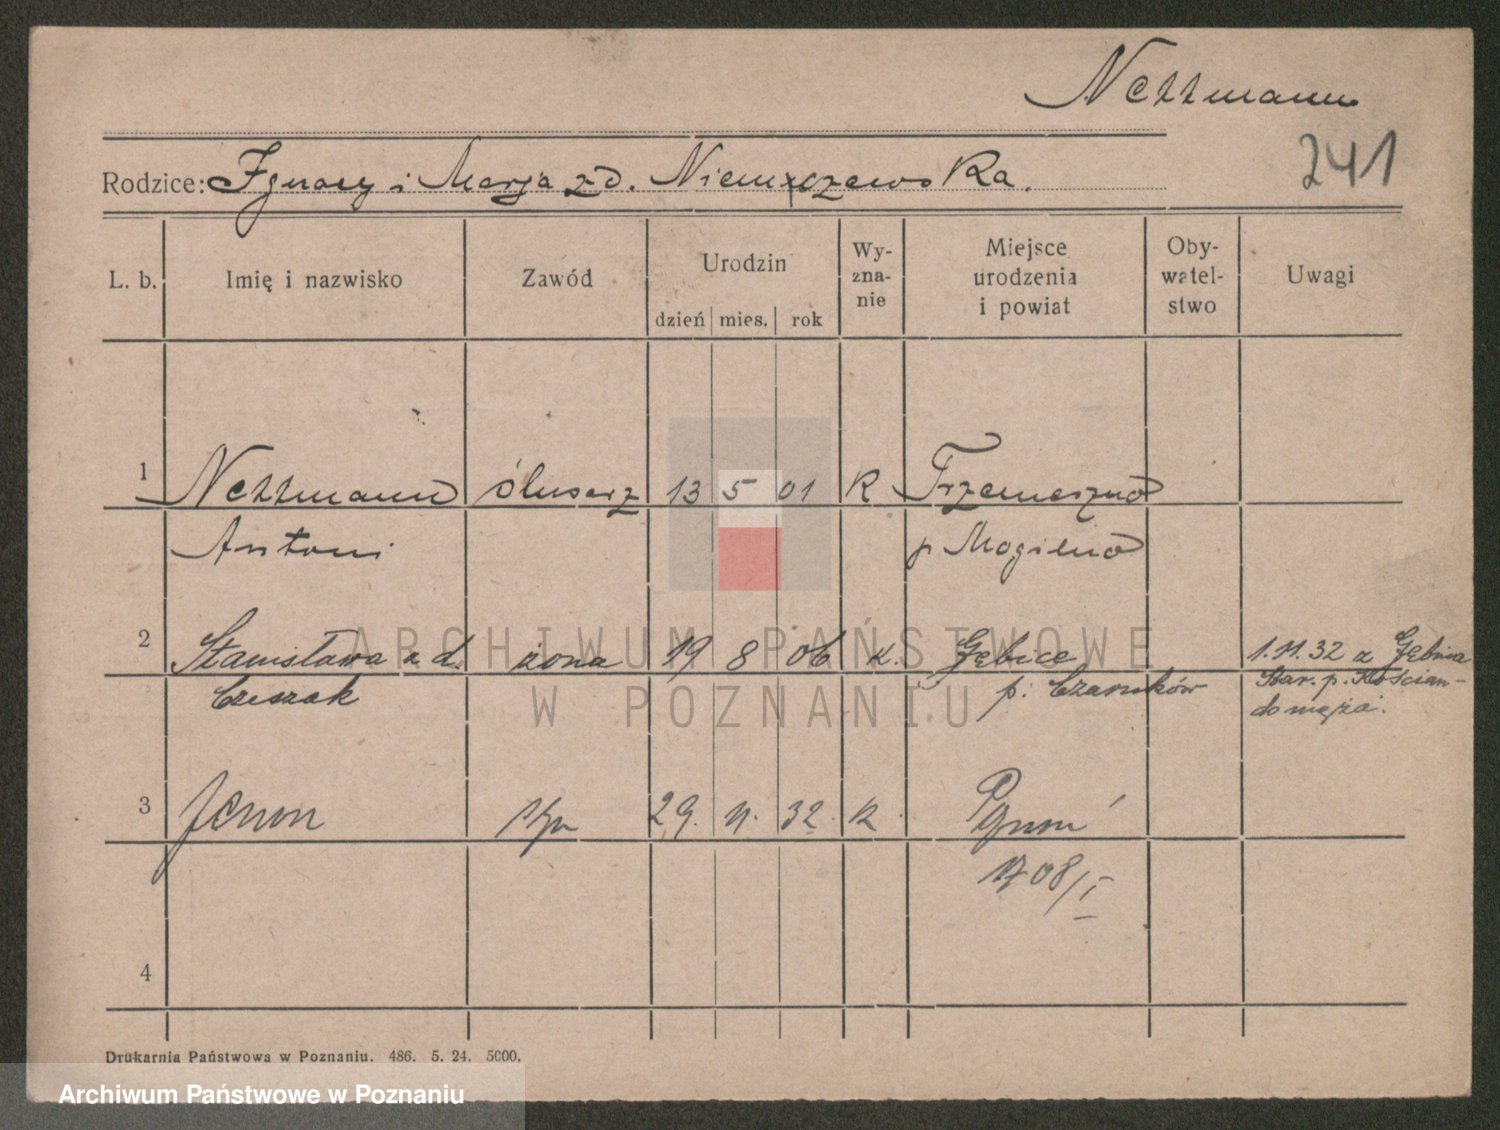 Nettmann
241
Rodzice: Ignacy i Marja z d. Niemczewska.
L. b. Imię i nazwisko Zawód Urodzin dzień mies. rok Wyznanie Miejsce urodzenia i powiat Obywatelstwo Uwagi
1 Nettmann ślusarz 13 5 01 K Trzemeszno
Antoni p Mogilno
2 Stanisława z d. żona 19 8 06 k. Gębice 1.11.32 z
Czeszak p. Czarnków Star. p. Kościan-
do męża.
3 Zenon syn 29. 11. 32. k Pznań
1708/I
4
Drukarnia Państwowa w Poznaniu. 486. 5. 24. 5000.
ARCHIWUM PAŃSTWOWE
W POZNANIU
Archiwum Państwowe w Poznaniu